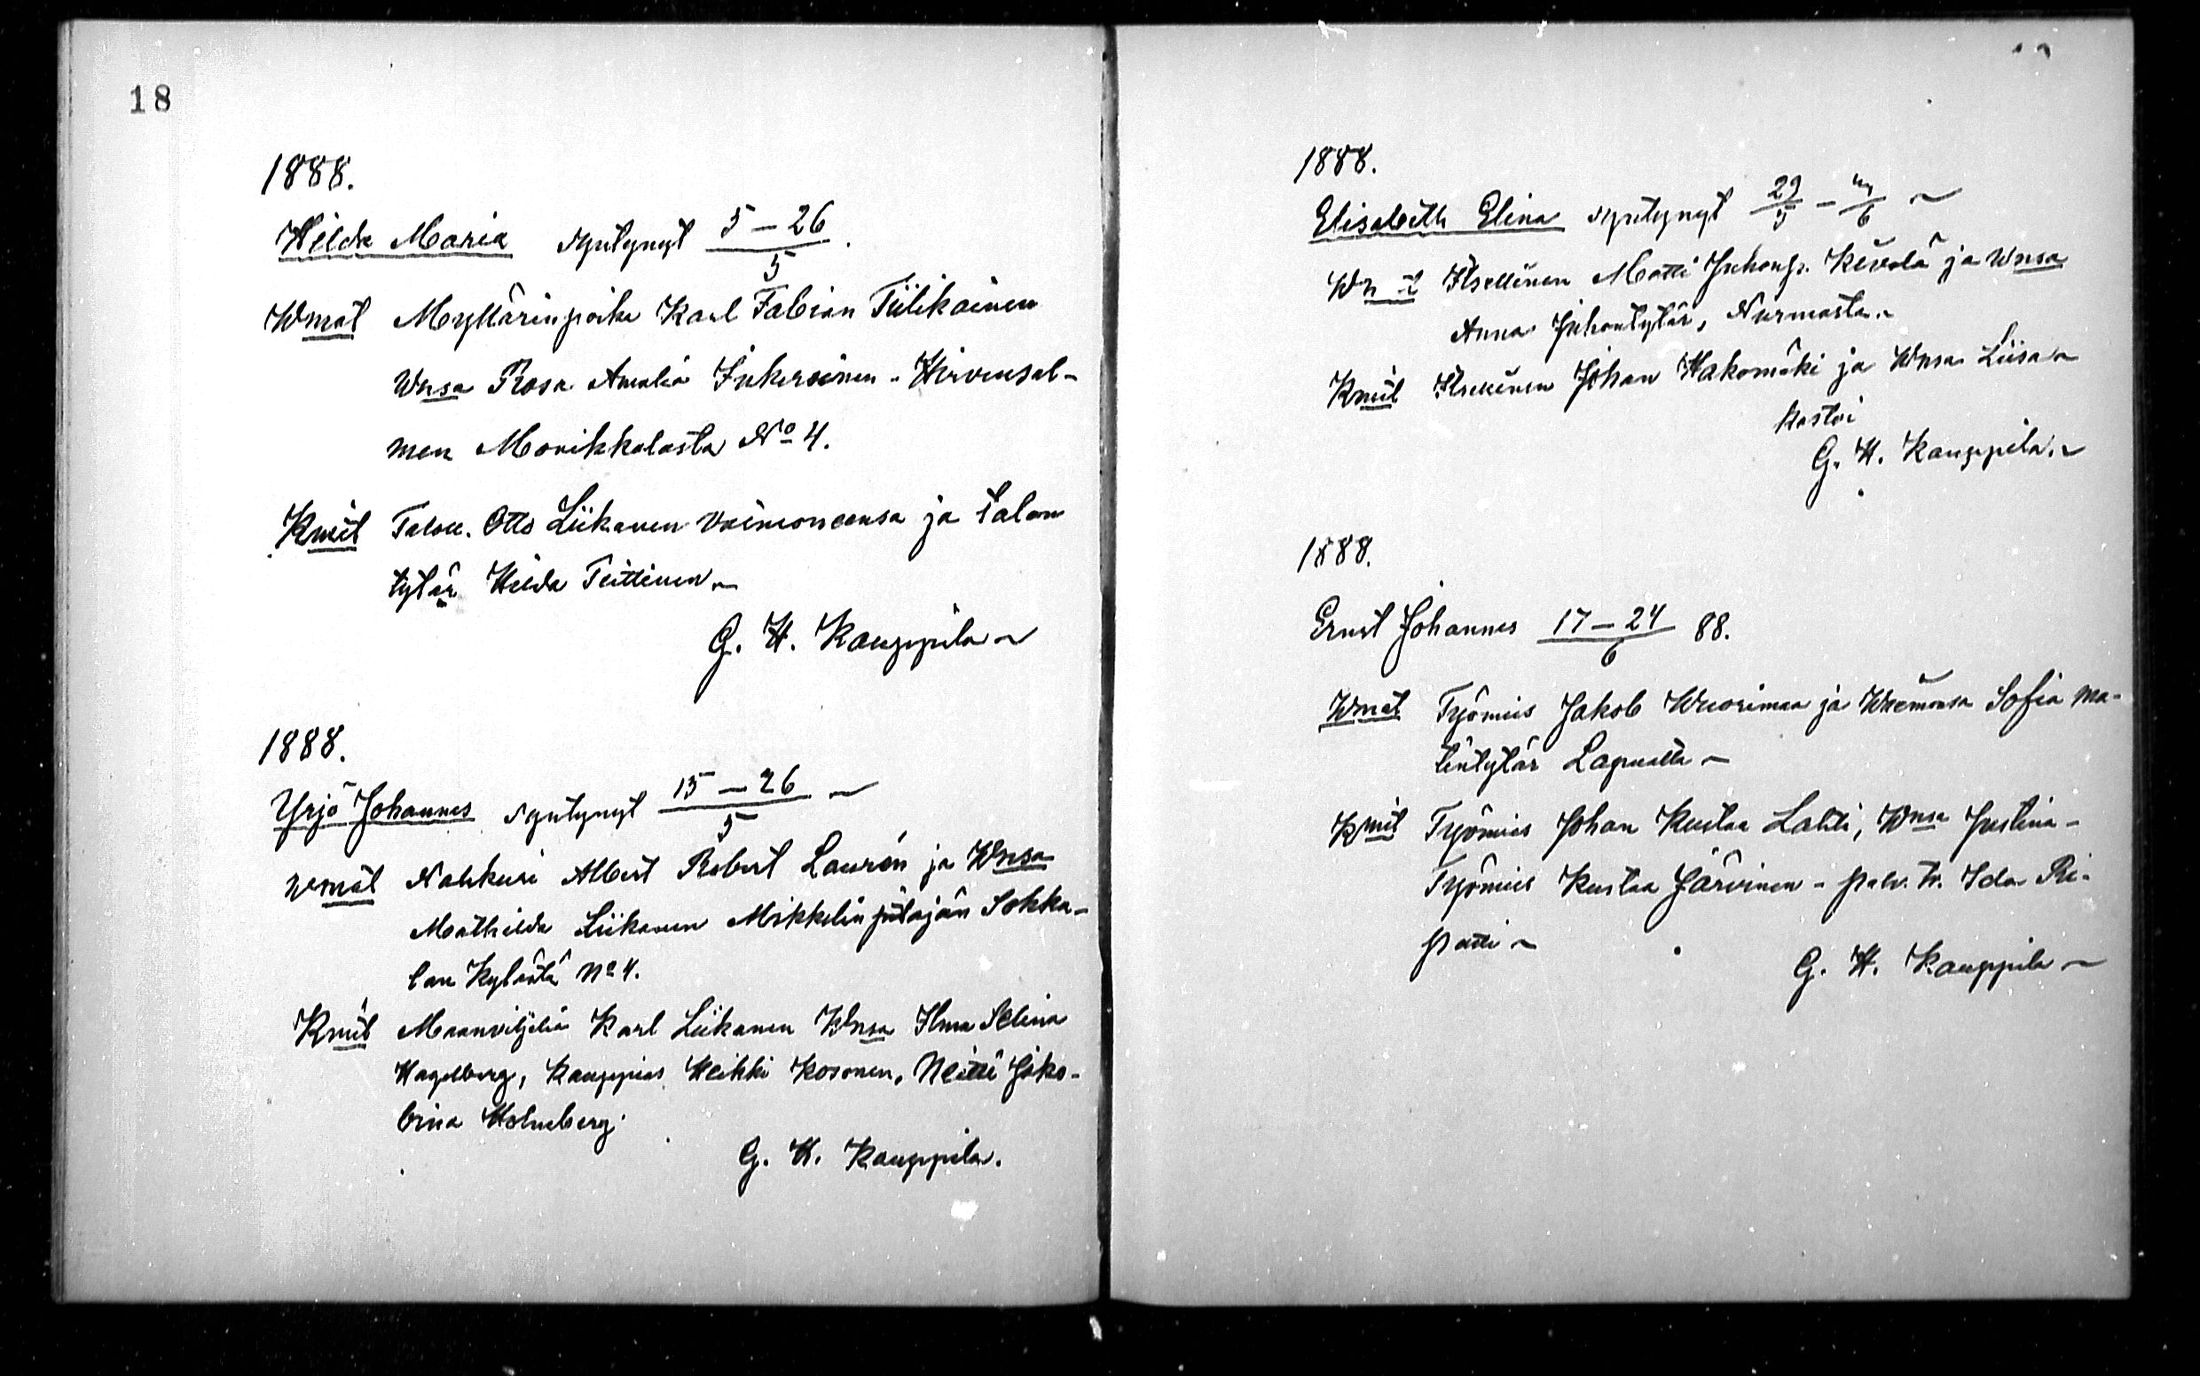 18
1888.
Hilda Maria syntynyt 5 – 26
5
Wmat Myllärinpoika Karl Fabian Tiilikainen
Wnsa Rosa Amalia Inkeroinen - Hirvensal-
men Monikkalasta No 4.
Kmit Talou. Otto Liikanen vaimoneensa ja talon
tytär Hilda Teittinen
G. H. Kauppila
1888.
Yrjö Johannes syntynyt 15 – 26
5
Wmat Nahkuri Albert Robert Laurén ja Wnsa
Mathilda Liikanen Mikkelin pitäjän Sokka-
lan kylästä No 4.
Kmit Maanviljeliä Karl Liikanen Wnsa Ilma Selina
Hagelberg, Kauppias Heikki Kosonen, Neitti Jako-
bina Holmberg.
G. H. Kauppila.
1888.
Elisabeth Elina syntynyt 29/5 –
Itsellinen Matti Juhonp. Kivelä ja Wnsa
Anna Juhontytär, Nurmosta.
Kmit Itsellinen Johan Hakomäki ja Wnsa Liisa
kastoi
G. H. Kauppila.
1888.
Ernst Johannes 17 – 24 88.
6
Wmat Työmies Jakob Wuorimaa ja Waimonsa Sofia Ma-
tintytär Lapualta
Kmit Työmies Johan Kustaa Lahti, Wnsa Justina -
Työmies Kustaa Järvinen - palv. tr. Ida Ri-
patti
G. H. Kauppila